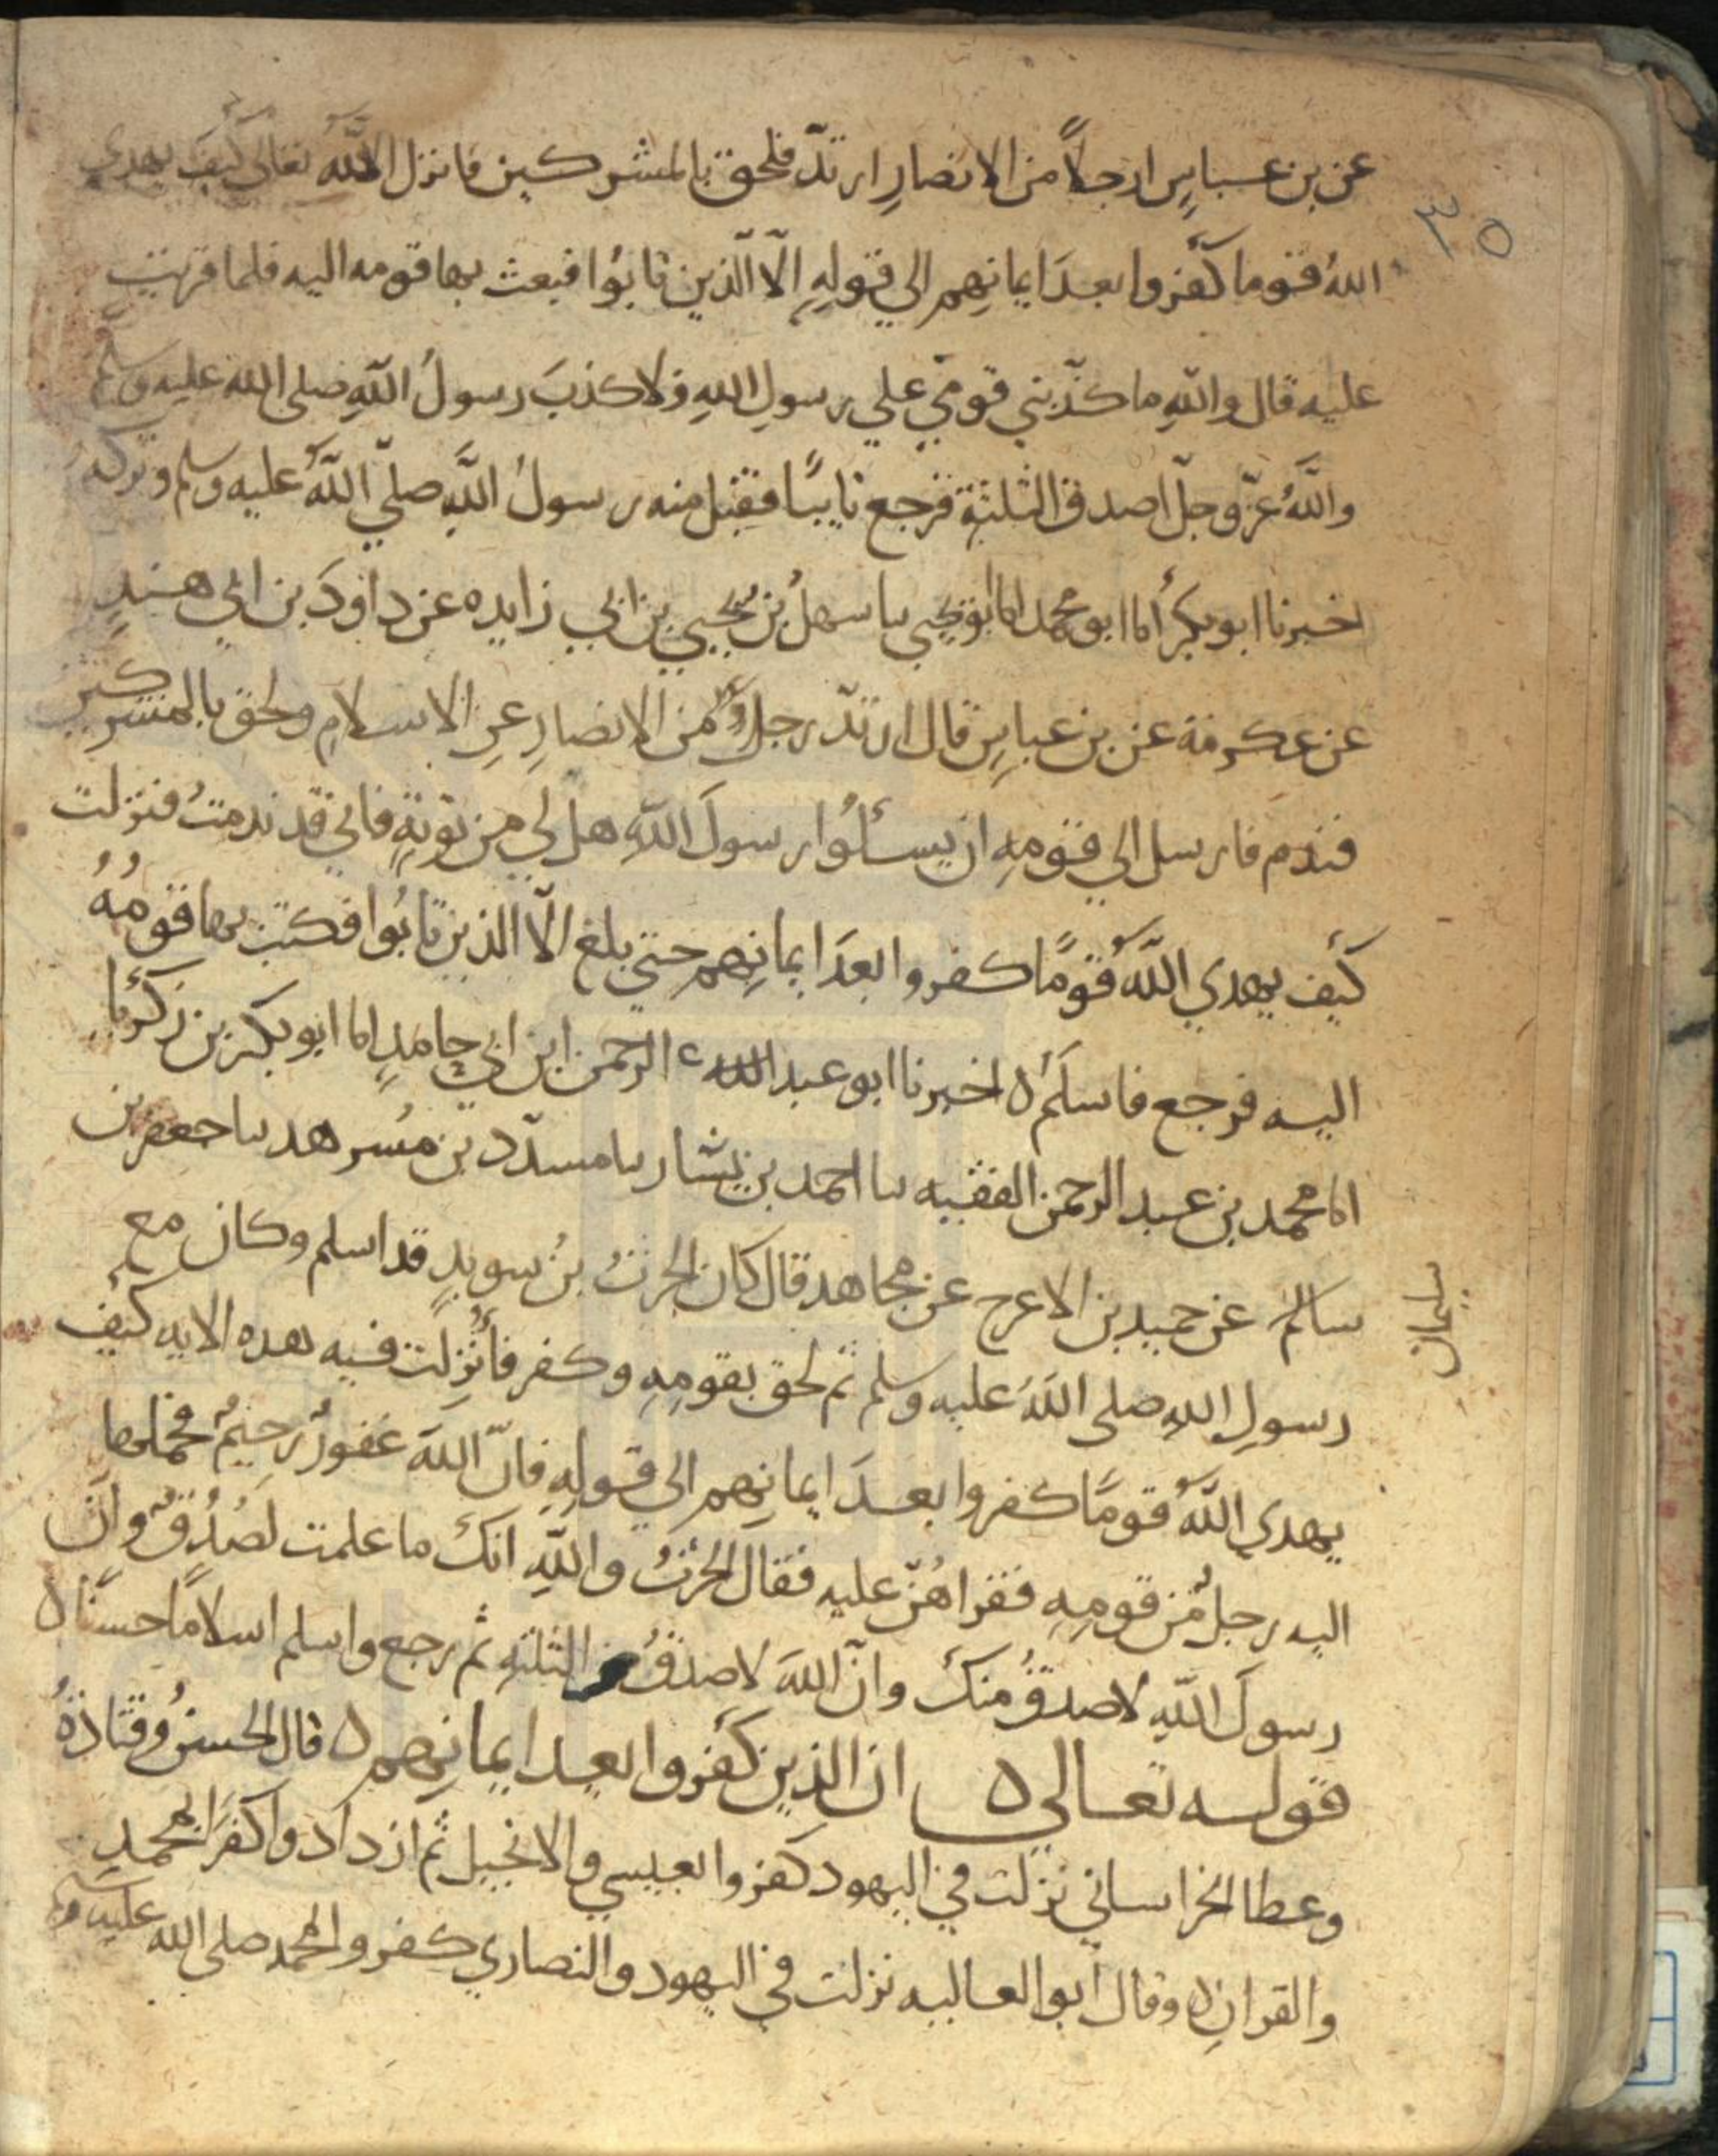 عن بن عباسٍ ان رجلاً من الانصارِ ارتدّ فلحق بالمشركين فانزل الله تعالى كيف يهدي
٣٥
اللهُ قوما كفروا بعدَ ايمانِهم الي قولهِ الّا الّذين تابوُا فبعث بها قومه اليه فلما قريت
عليه قال واللهِ ما كذّبني قومي علي رسولِ اللهِ ولا كذبَ رسولُ اللهِ صلى الله عليه وسلم
واللهُ عزّ وجلّ اصدق الثلثةِ فرجع تايبًا فقبل منه رسولُ اللهِ صلّي اللهُ عليه وسلم وتركه
اخبرنا ابو بكرٍ انا ابو محمد انا ابو يحيي نا سهلُ بن يحيي بن ابي زايده عن داوُدَ بن ابي هندٍ
عن عكرمة عن بن عباسٍ قال ارتدّ رجلٌ من الانصارِ عنِ الاسلامِ ولحق بالمشركين
فندم فارسل الي قومهِ ان يسئلُوا رسولَ اللهِ هل لي من توبةٍ فاني قد ندمتُ فنزلت
كيف يهدي اللهُ قومًا كفروا بعدَ ايمانِهم حتي بلغ الّا الذين تابُوا فكتب بها قومُهُ
اليه فرجع فاسلم ه اخبرنا ابو عبد الرحمن ابن ابي حامدٍ انا ابو بكر بن زكريا
انا محمد بن عبد الرحمن الفقيه نا احمد بن بشار نا مسدّد بن مُسرهد نا جعفر بن
سليمان
سالم عن حميد بن الاعرج عن مجاهد قال كان الحرثُ بنُ سويدٍ قد اسلم وكان مع
رسولِ اللهِ صلى اللهُ عليه وسلم ثم لحق بقومِهِ وكفر فأُنزِلت فيه هذه الايه كيف
يهدي اللهُ قومًا كفروا بعدَ ايمانِهم الي قولهِ فانّ اللهَ غفورٌ رحيمٌ فحملها
اليه رجلٌ من قومِهِ فقراهُنّ عليه فقال الحرثُ واللهِ انك ما علمت لصُدُقٌ وانّ
رسولَ اللهِ لاصدقُ منك وانّ اللهَ لاصدقُ الثلثهِ ثم رجع واسلم اسلامًا حسنًا ه
قوله تعالي ه ان الذين كفروا بعد ايمانِهم ه قال الحسنُ وقتادةُ
وعطا الخراساني نزلت في اليهود كفروا بعيسي والانجيل ثم ازدادوا كفرًا بمحمدٍ
والقرانِ ه وقال ابو العاليه نزلت في اليهود والنصاري كفروا بمحمد صلى الله عليه وسلم